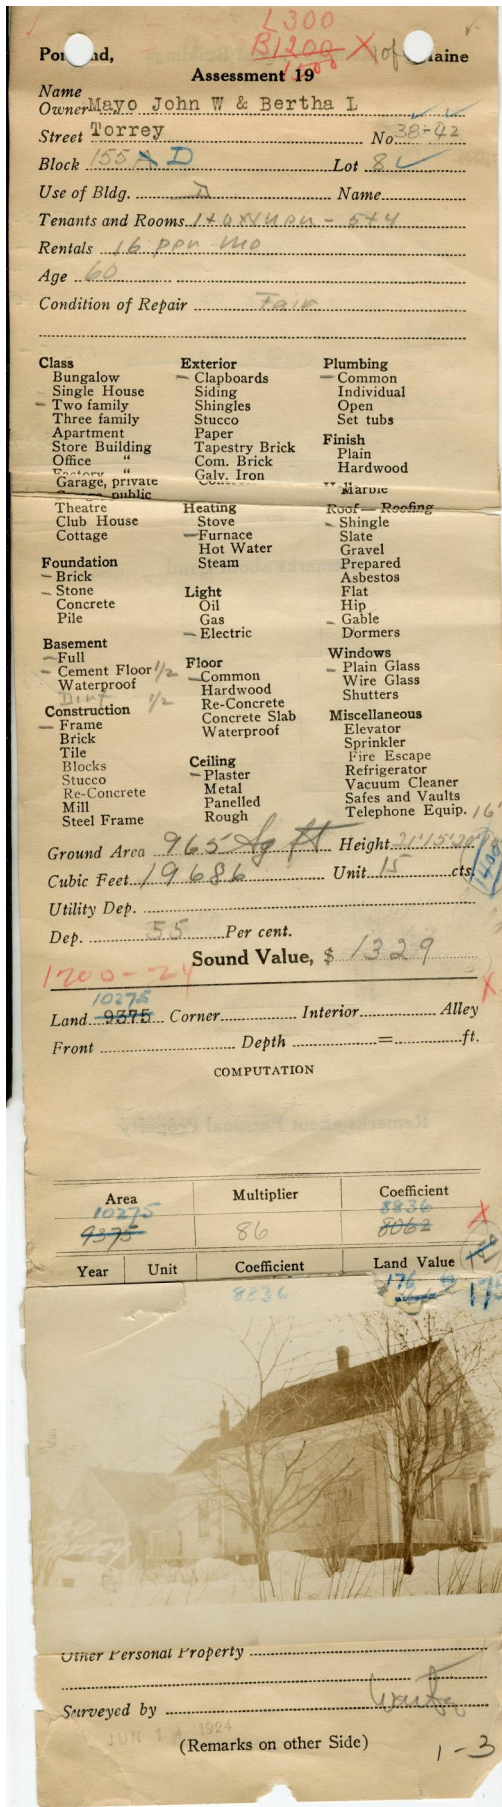 L 300
B1200 X 1 of
Portland, Maine
1500
Assessment 19
Name
Owner Mayo John W & Bertha L
Street Torrey No. 38-42
Block 155 A D Lot 8
Use of Bldg. D Name
Tenants and Rooms 1 + owner - 5+4
Rentals 16 per mo
Age 60
Condition of Repair Fair
Class
Bungalow
Single House
– Two family
Three family
Apartment
Store Building
Office "
Factory "
Garage, private
Garage public
Theatre
Club House
Cottage
Foundation
– Brick
– Stone
Concrete
Pile
Basement
– Full
– Cement Floor 1/2
Waterproof
Dirt 1/2
Construction
– Frame
Brick
Tile
Blocks
Stucco
Re-Concrete
Mill
Steel Frame
Exterior
– Clapboards
Siding
Shingles
Stucco
Paper
Tapestry Brick
Com. Brick
Galv. Iron
Heating
Stove
– Furnace
Hot Water
Steam
Light
Oil
Gas
– Electric
Floor
– Common
Hardwood
Re-Concrete
Concrete Slab
Waterproof
Ceiling
– Plaster
Metal
Panelled
Rough
Plumbing
– Common
Individual
Open
Set tubs
Finish
Plain
Hardwood
Marble
Roof — Roofing
– Shingle
Slate
Gravel
Prepared
Asbestos
Flat
Hip
– Gable
Dormers
Windows
– Plain Glass
Wire Glass
Shutters
Miscellaneous
Elevator
Sprinkler
Fire Escape
Refrigerator
Vacuum Cleaner
Safes and Vaults
Telephone Equip. 16'
Ground Area 965 Sq ft Height 21' 15' 20'
Cubic Feet 19686 Unit 15 cts.
1408
Utility Dep.
Dep. 55 Per cent.
Sound Value, $ 1329
1200-24 X
10275
Land 9375 Corner Interior Alley
Front Depth = ft.
COMPUTATION
Area Multiplier Coefficient
10275 8836 X
9375 86 8062
Year Unit Coefficient Land Value
8836 176 175
40
Torrey
Other Personal Property
Surveyed by
JUN 14 1924
(Remarks on other Side)
1-3